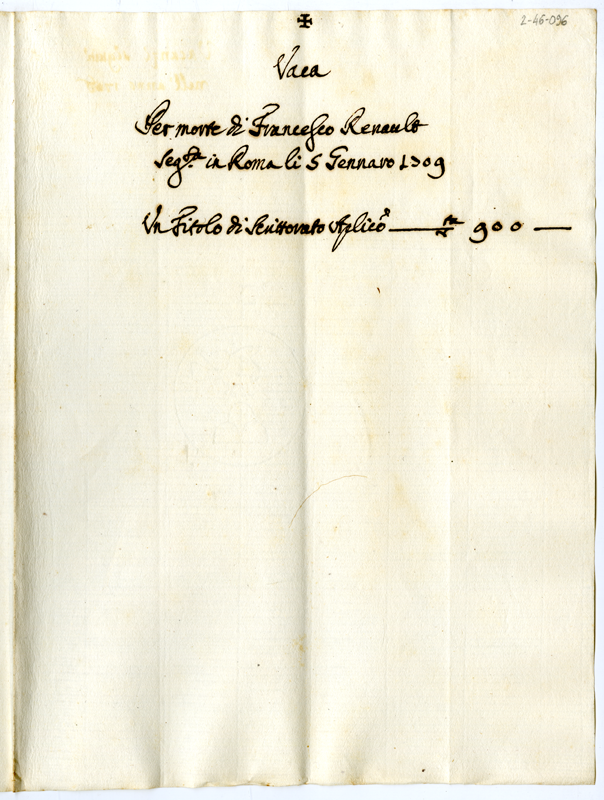 ✠
2-46-096
Vaca
Per morte di Francesco Renault
Seg.ta in Roma li 5 Gennaro 1709
Un Titolo di Scrittorato Aplico 900